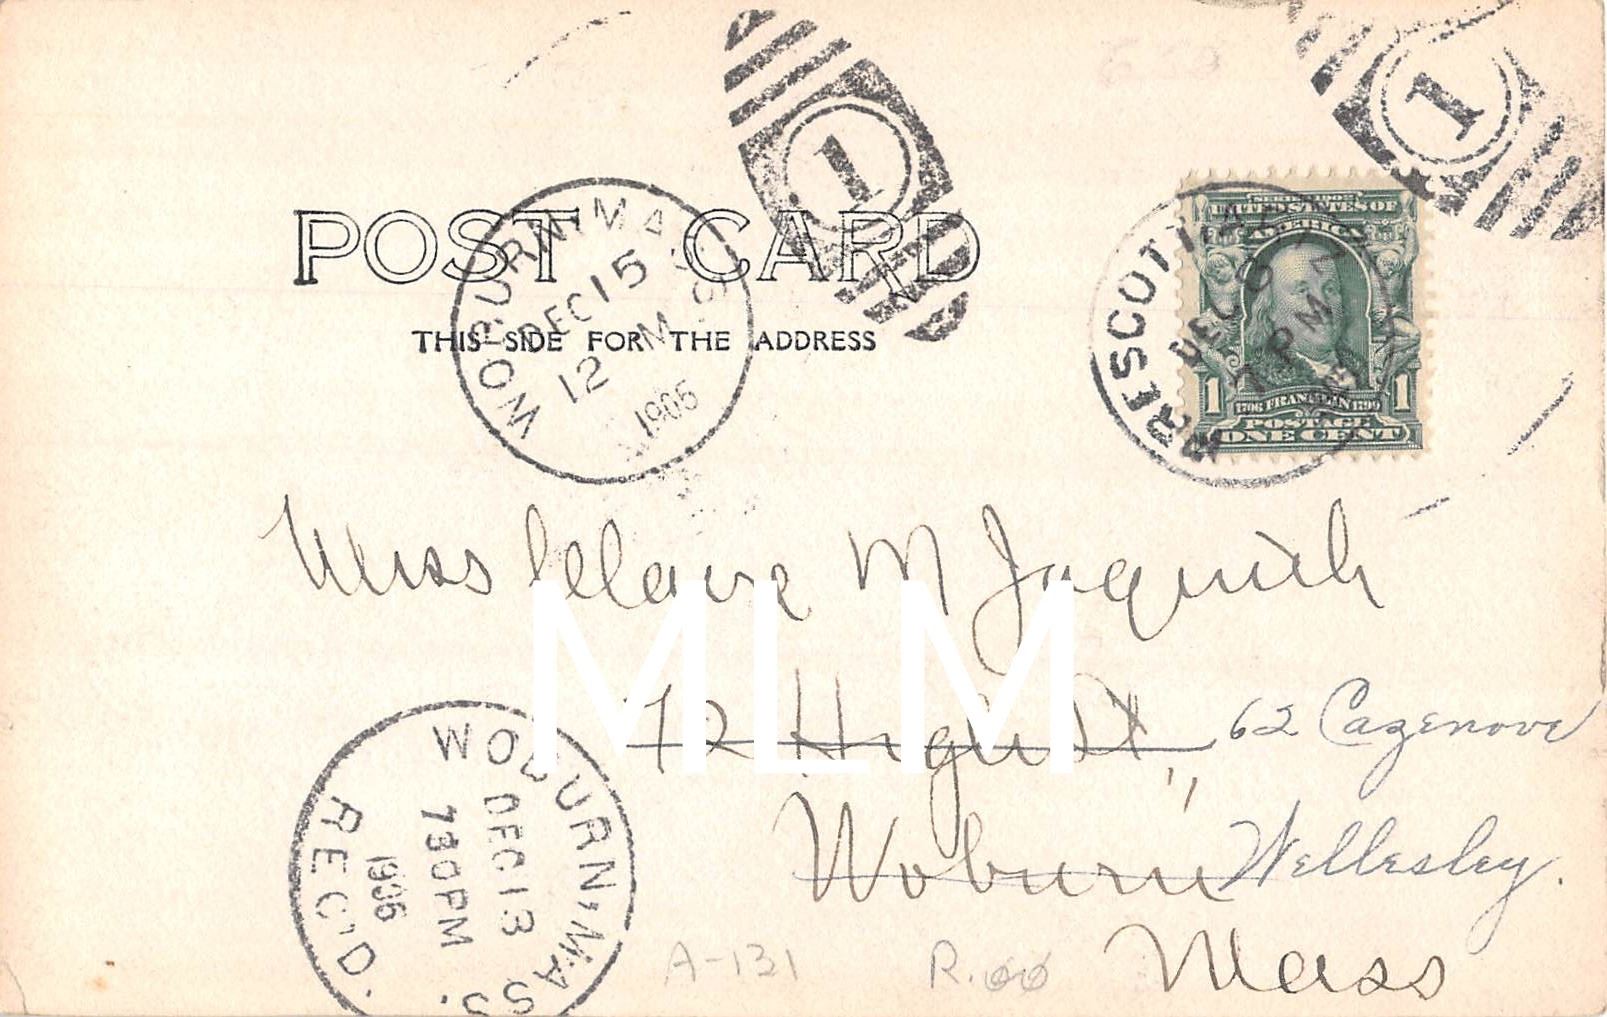 1
1
POST CARD
THIS SIDE FOR THE ADDRESS
WOBURN, MASS.
DEC 15
12 M
1906
PRESCOTT, ARIZ.
DEC 8
7 PM
SERIES 1902
UNITED STATES OF
AMERICA
1 1706 FRANKLIN 1790 1
POSTAGE
ONE CENT
Miss Claire M Jaquith
72 High St., 62 Cazenove
Woburn Wellesley.
Mass
MLM
WOBURN, MASS.
DEC 13
730PM
1906
REC'D.
A-131 R.00